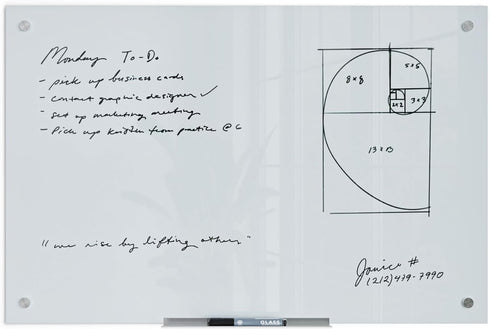 Monday To-Do
- pick up business cards
- contact graphic designer ✓
- set up marketing meeting
- Pick up kristin from practice @ 6
"we rise by lifting others"
8 x 8
5 x 5
2 x 2
3 x 3
13 x 13
Janice #
(212) 479-7990
GLASS